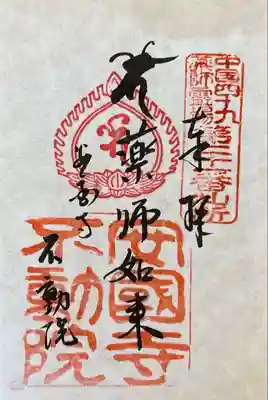 中国四十九
薬師霊場
奉拝
藥師如来
安国寺
不動院
安國寺
不動院